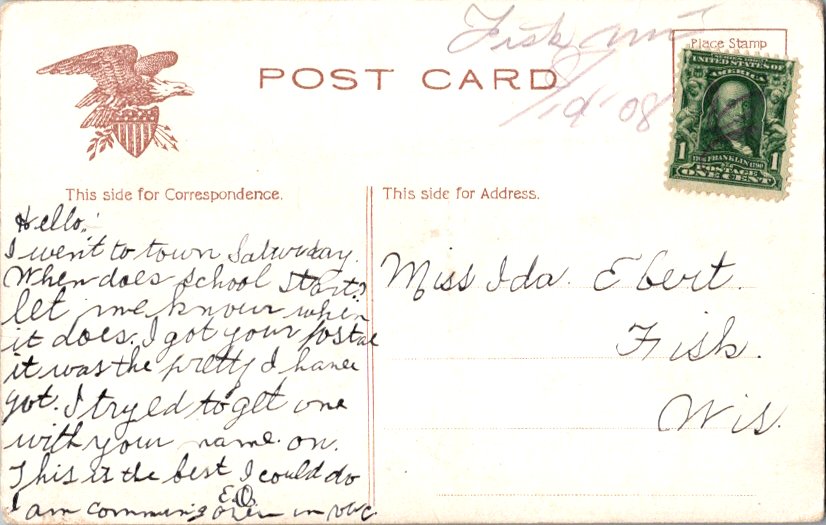 Fisk
8/19/08
POST CARD
Place Stamp
UNITED STATES OF
AMERICA
1706 FRANKLIN 1790
1 POSTAGE 1
ONE CENT
This side for Correspondence.
This side for Address.
Hello.
I went to town Saturday.
When does school start?
let me know when
it does. I got your postal
it was the pretty I have
got. I tryed to get one
with your name on.
This is the best I could do
I am comming in
E.O.
Miss Ida. Ebert.
Fisk.
Wis.